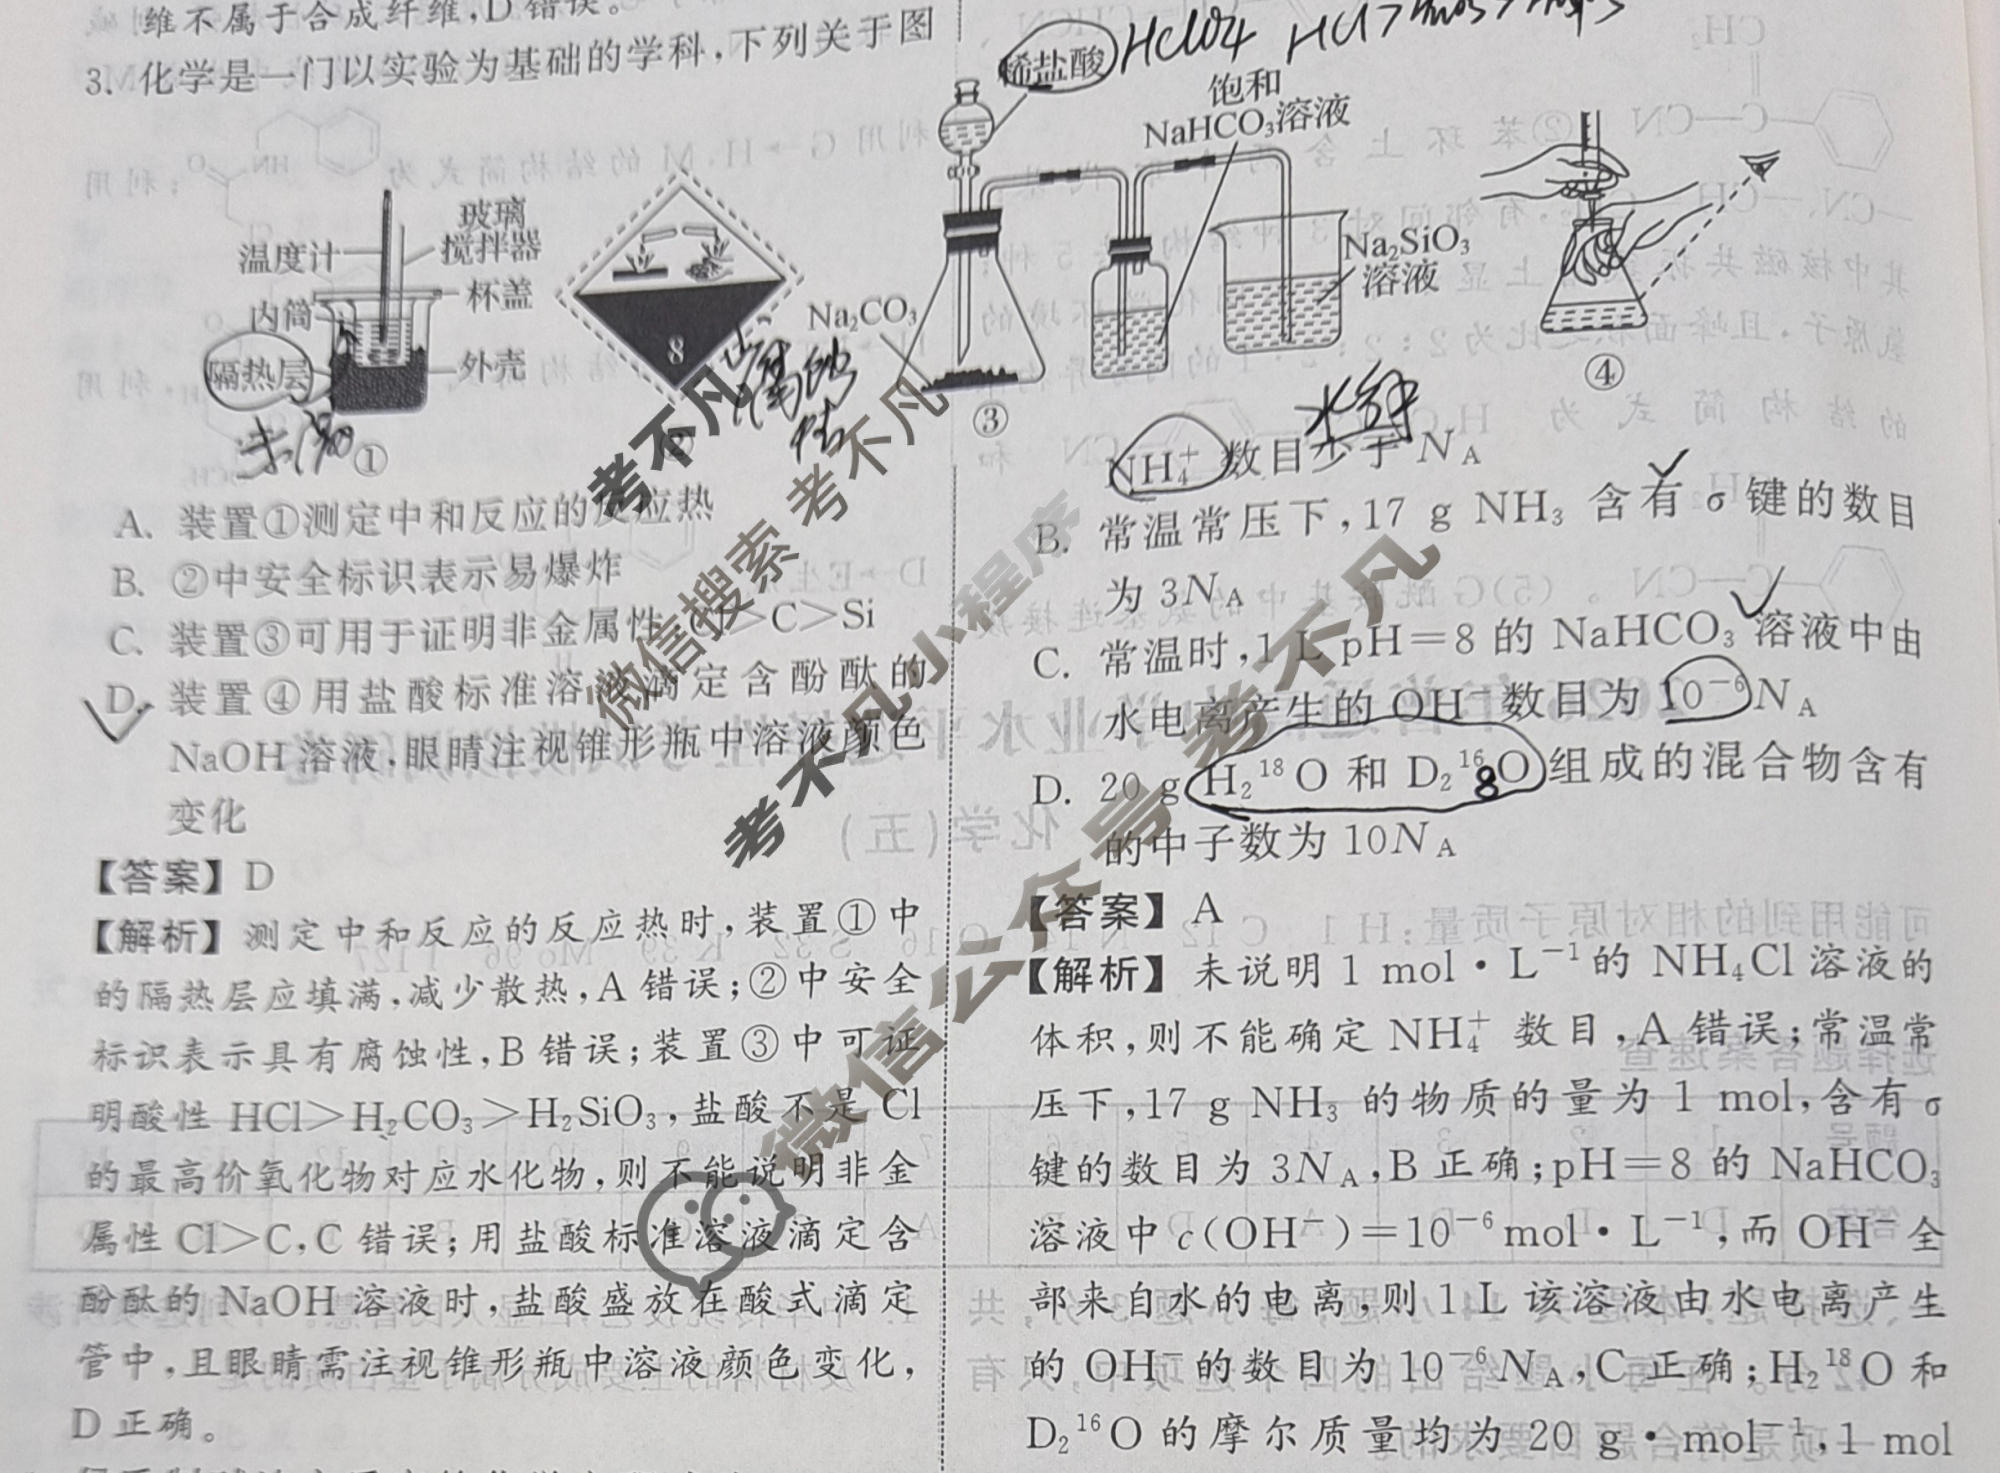 维不属于合成纤维,D错误。
3. 化学是一门以实验为基础的学科,下列关于图
温度计
玻璃
搅拌器
内筒
杯盖
隔热层
外壳
未满
①
8
腐蚀
性
稀盐酸
HClO4
饱和
NaHCO₃溶液
Na₂SiO₃
溶液
Na₂CO₃
③
④
A. 装置①测定中和反应的反应热
B. ②中安全标识表示易爆炸
C. 装置③可用于证明非金属性:Cl>C>Si
D. 装置④用盐酸标准溶液滴定含酚酞的
NaOH溶液,眼睛注视锥形瓶中溶液颜色
变化
【答案】D
【解析】测定中和反应的反应热时,装置①中
的隔热层应填满,减少散热,A错误;②中安全
标识表示具有腐蚀性,B错误;装置③中可证
明酸性 HCl>H₂CO₃>H₂SiO₃,盐酸不是Cl
的最高价氧化物对应水化物,则不能说明非金
属性Cl>C,C错误;用盐酸标准溶液滴定含
酚酞的NaOH溶液时,盐酸盛放在酸式滴定
管中,且眼睛需注视锥形瓶中溶液颜色变化,
D正确。
水解
NH₄⁺ 数目少于 N_A
B. 常温常压下,17 g NH₃ 含有 σ 键的数目
为 3N_A
C. 常温时,1 L pH=8 的 NaHCO₃ 溶液中由
水电离产生的 OH⁻ 数目为 10⁻⁶ N_A
D. 20 g H₂¹⁸O 和 D₂¹⁶O 组成的混合物含有
8
的中子数为 10N_A
【答案】A
【解析】未说明 1 mol·L⁻¹ 的 NH₄Cl 溶液的
体积,则不能确定 NH₄⁺ 数目,A错误;常温常
压下,17 g NH₃ 的物质的量为 1 mol,含有 σ
键的数目为 3N_A,B正确;pH=8 的 NaHCO₃
溶液中 c(OH⁻)=10⁻⁶ mol·L⁻¹,而 OH⁻ 全
部来自水的电离,则 1 L 该溶液由水电离产生
的 OH⁻ 的数目为 10⁻⁶ N_A,C正确;H₂¹⁸O 和
D₂¹⁶O 的摩尔质量均为 20 g·mol⁻¹,1 mol
考不凡
考不凡
微信搜索
考不凡小程序
考不凡
微信公众号